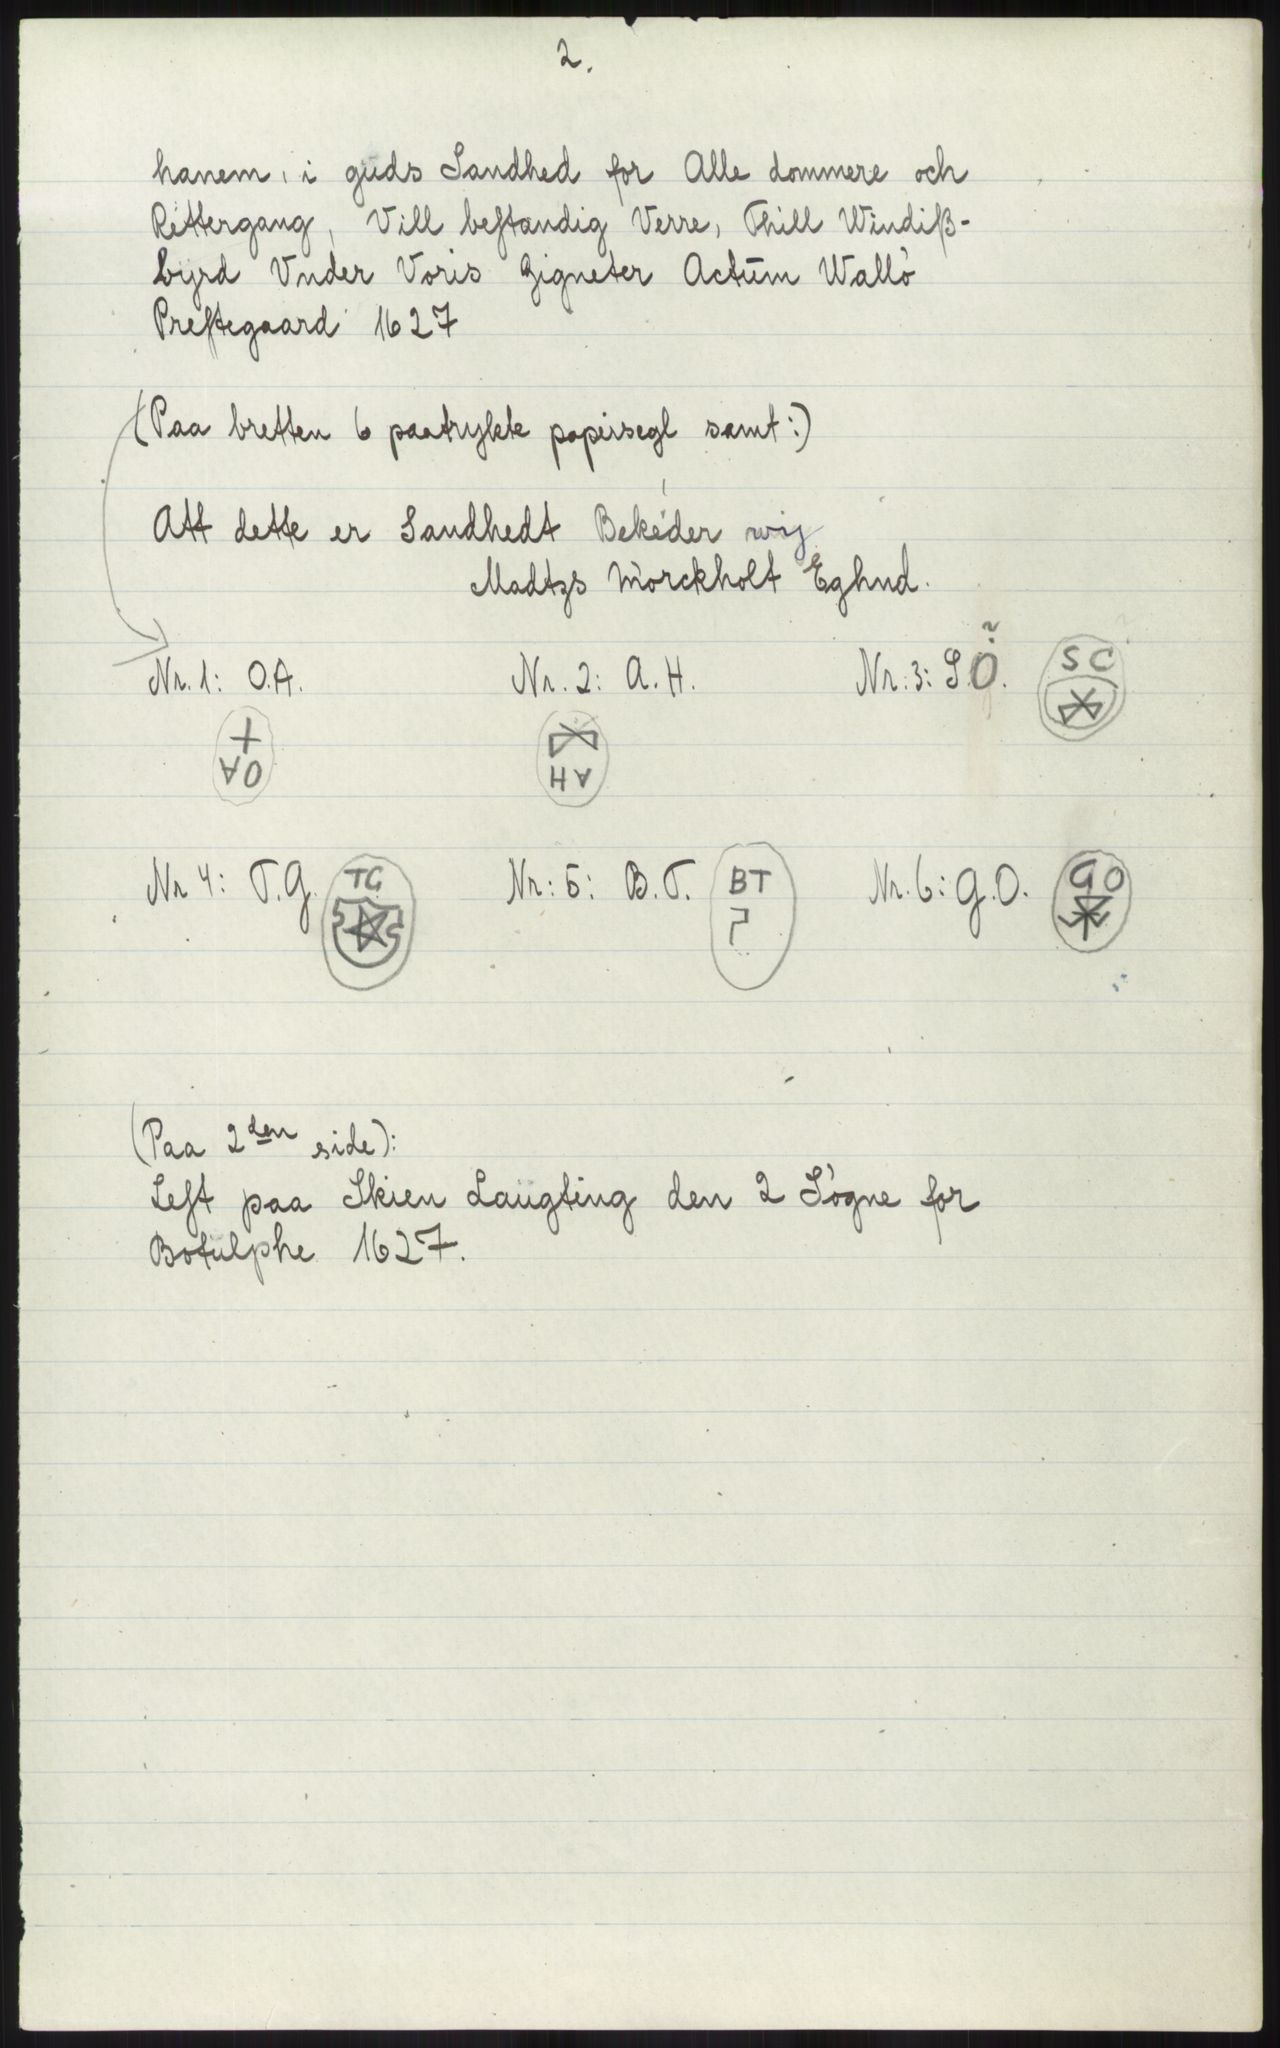 2.
hanem, i guds Sandhed for Alle dommere och
Rettergang, Vill bestandig Verre, Thill Windiß-
byrd Vnder Voris Zigneter Actūm Wallò
Prestegaard 1627
(Paa bretten 6 paatrykte papirsegl samt:)
Att dette er Sandhedt Bekéder wij
Madtzs Mòrckholt Eghnd.
Nr. 1: O.A. Nr. 2: A.H. Nr. 3: S.O. ? SC
OA AH
Nr 4: T.G. TG Nr: 5: B.T. BT Nr. 6: G.O. GO
(Paa 2den side):
Lest paa Skien Laugting den 2 Sògne for
Botulphe 1627.